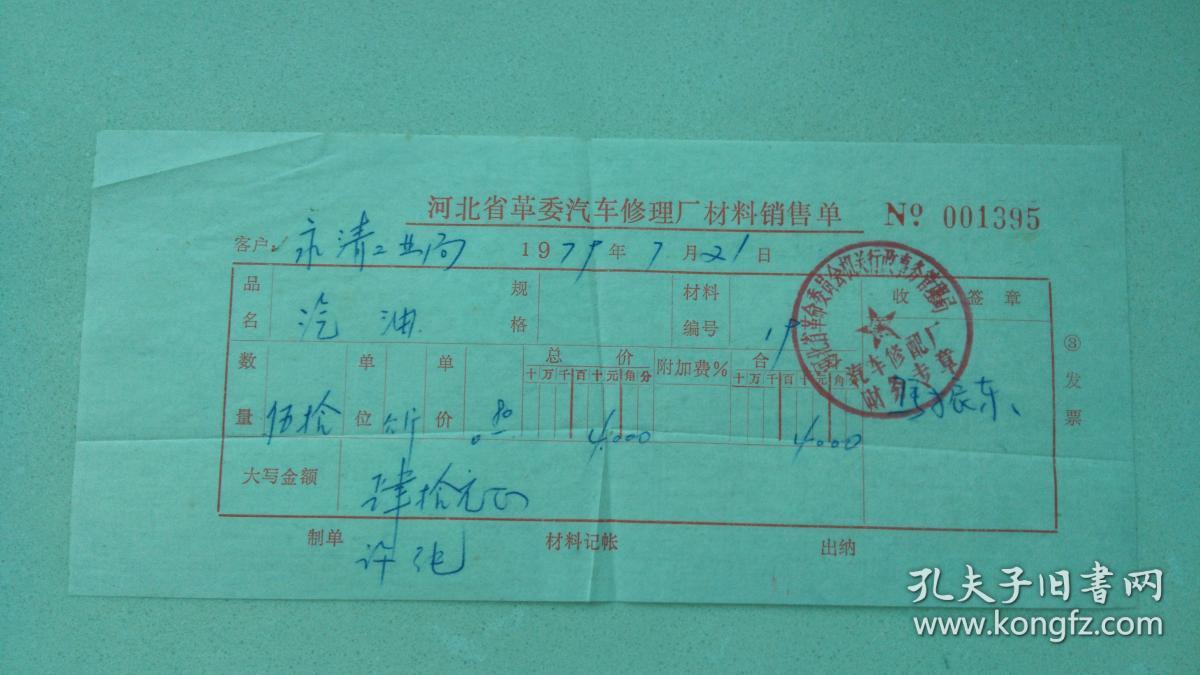 河北省革委汽车修理厂材料销售单 № 001395
客户: 永清工业局 1979年7月21日
品名 汽油 规格 材料编号 收 签章
数量 伍拾 单位 公斤 单价 0.80 总价 十万千百十元角分 4000 附加费% 合 十万千百十元角 4000
大写金额 肆拾元正
制单 许 材料记帐 出纳
③发票
河北省革命委员会机关行政事务管理局
汽车修配厂
财务专章
振东
孔夫子旧书网
www.kongfz.com